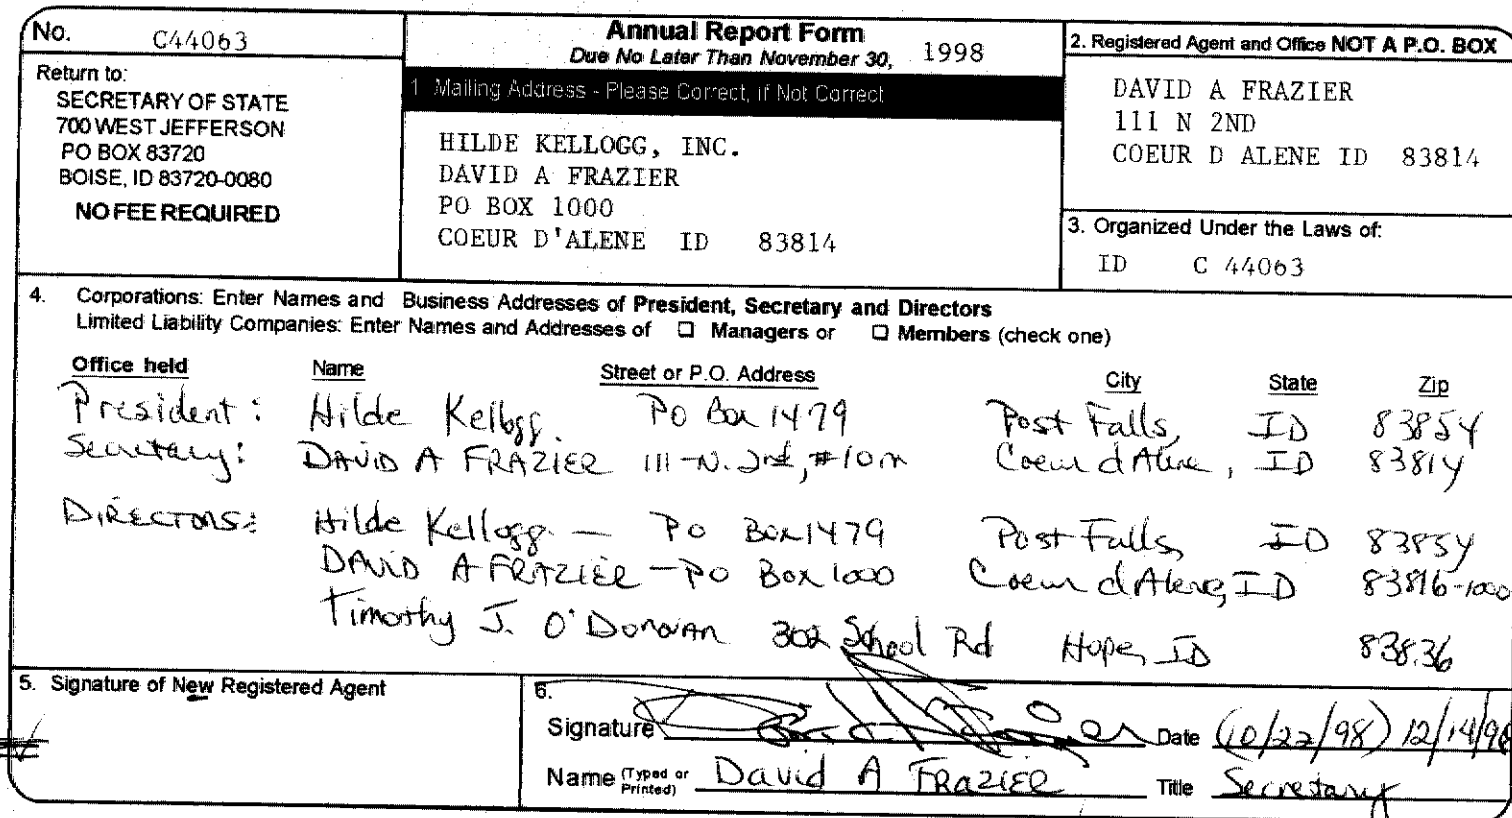 No. C44063
Return to:
SECRETARY OF STATE
700 WEST JEFFERSON
PO BOX 83720
BOISE, ID 83720-0080
NO FEE REQUIRED
Annual Report Form
Due No Later Than November 30, 1998
1 Mailing Address - Please Correct, if Not Correct
HILDE KELLOGG, INC.
DAVID A FRAZIER
PO BOX 1000
COEUR D'ALENE ID 83814
2. Registered Agent and Office NOT A P.O. BOX
DAVID A FRAZIER
111 N 2ND
COEUR D ALENE ID 83814
3. Organized Under the Laws of:
ID C 44063
4. Corporations: Enter Names and Business Addresses of President, Secretary and Directors
Limited Liability Companies: Enter Names and Addresses of ☐ Managers or ☐ Members (check one)
Office held Name Street or P.O. Address City State Zip
President: Hilde Kellogg. PO Box 1479 Post Falls, ID 83854
Secretary: DAVID A FRAZIER 111-N. 2nd, Coeur d Alene, ID 83814
DIRECTORS: Hilde Kellogg — PO Box 1479 Post Falls, ID 83854
DAVID A FRAZIER - PO Box 1000 Coeur d Alene, ID 83816-1000
Timothy J. O'Donovan 302 School Rd Hope, ID 83836
5. Signature of New Registered Agent
6.
Signature Date (10/22/98) 12/14/98
Name (Typed or Printed) David A FRAZIER Title Secretary